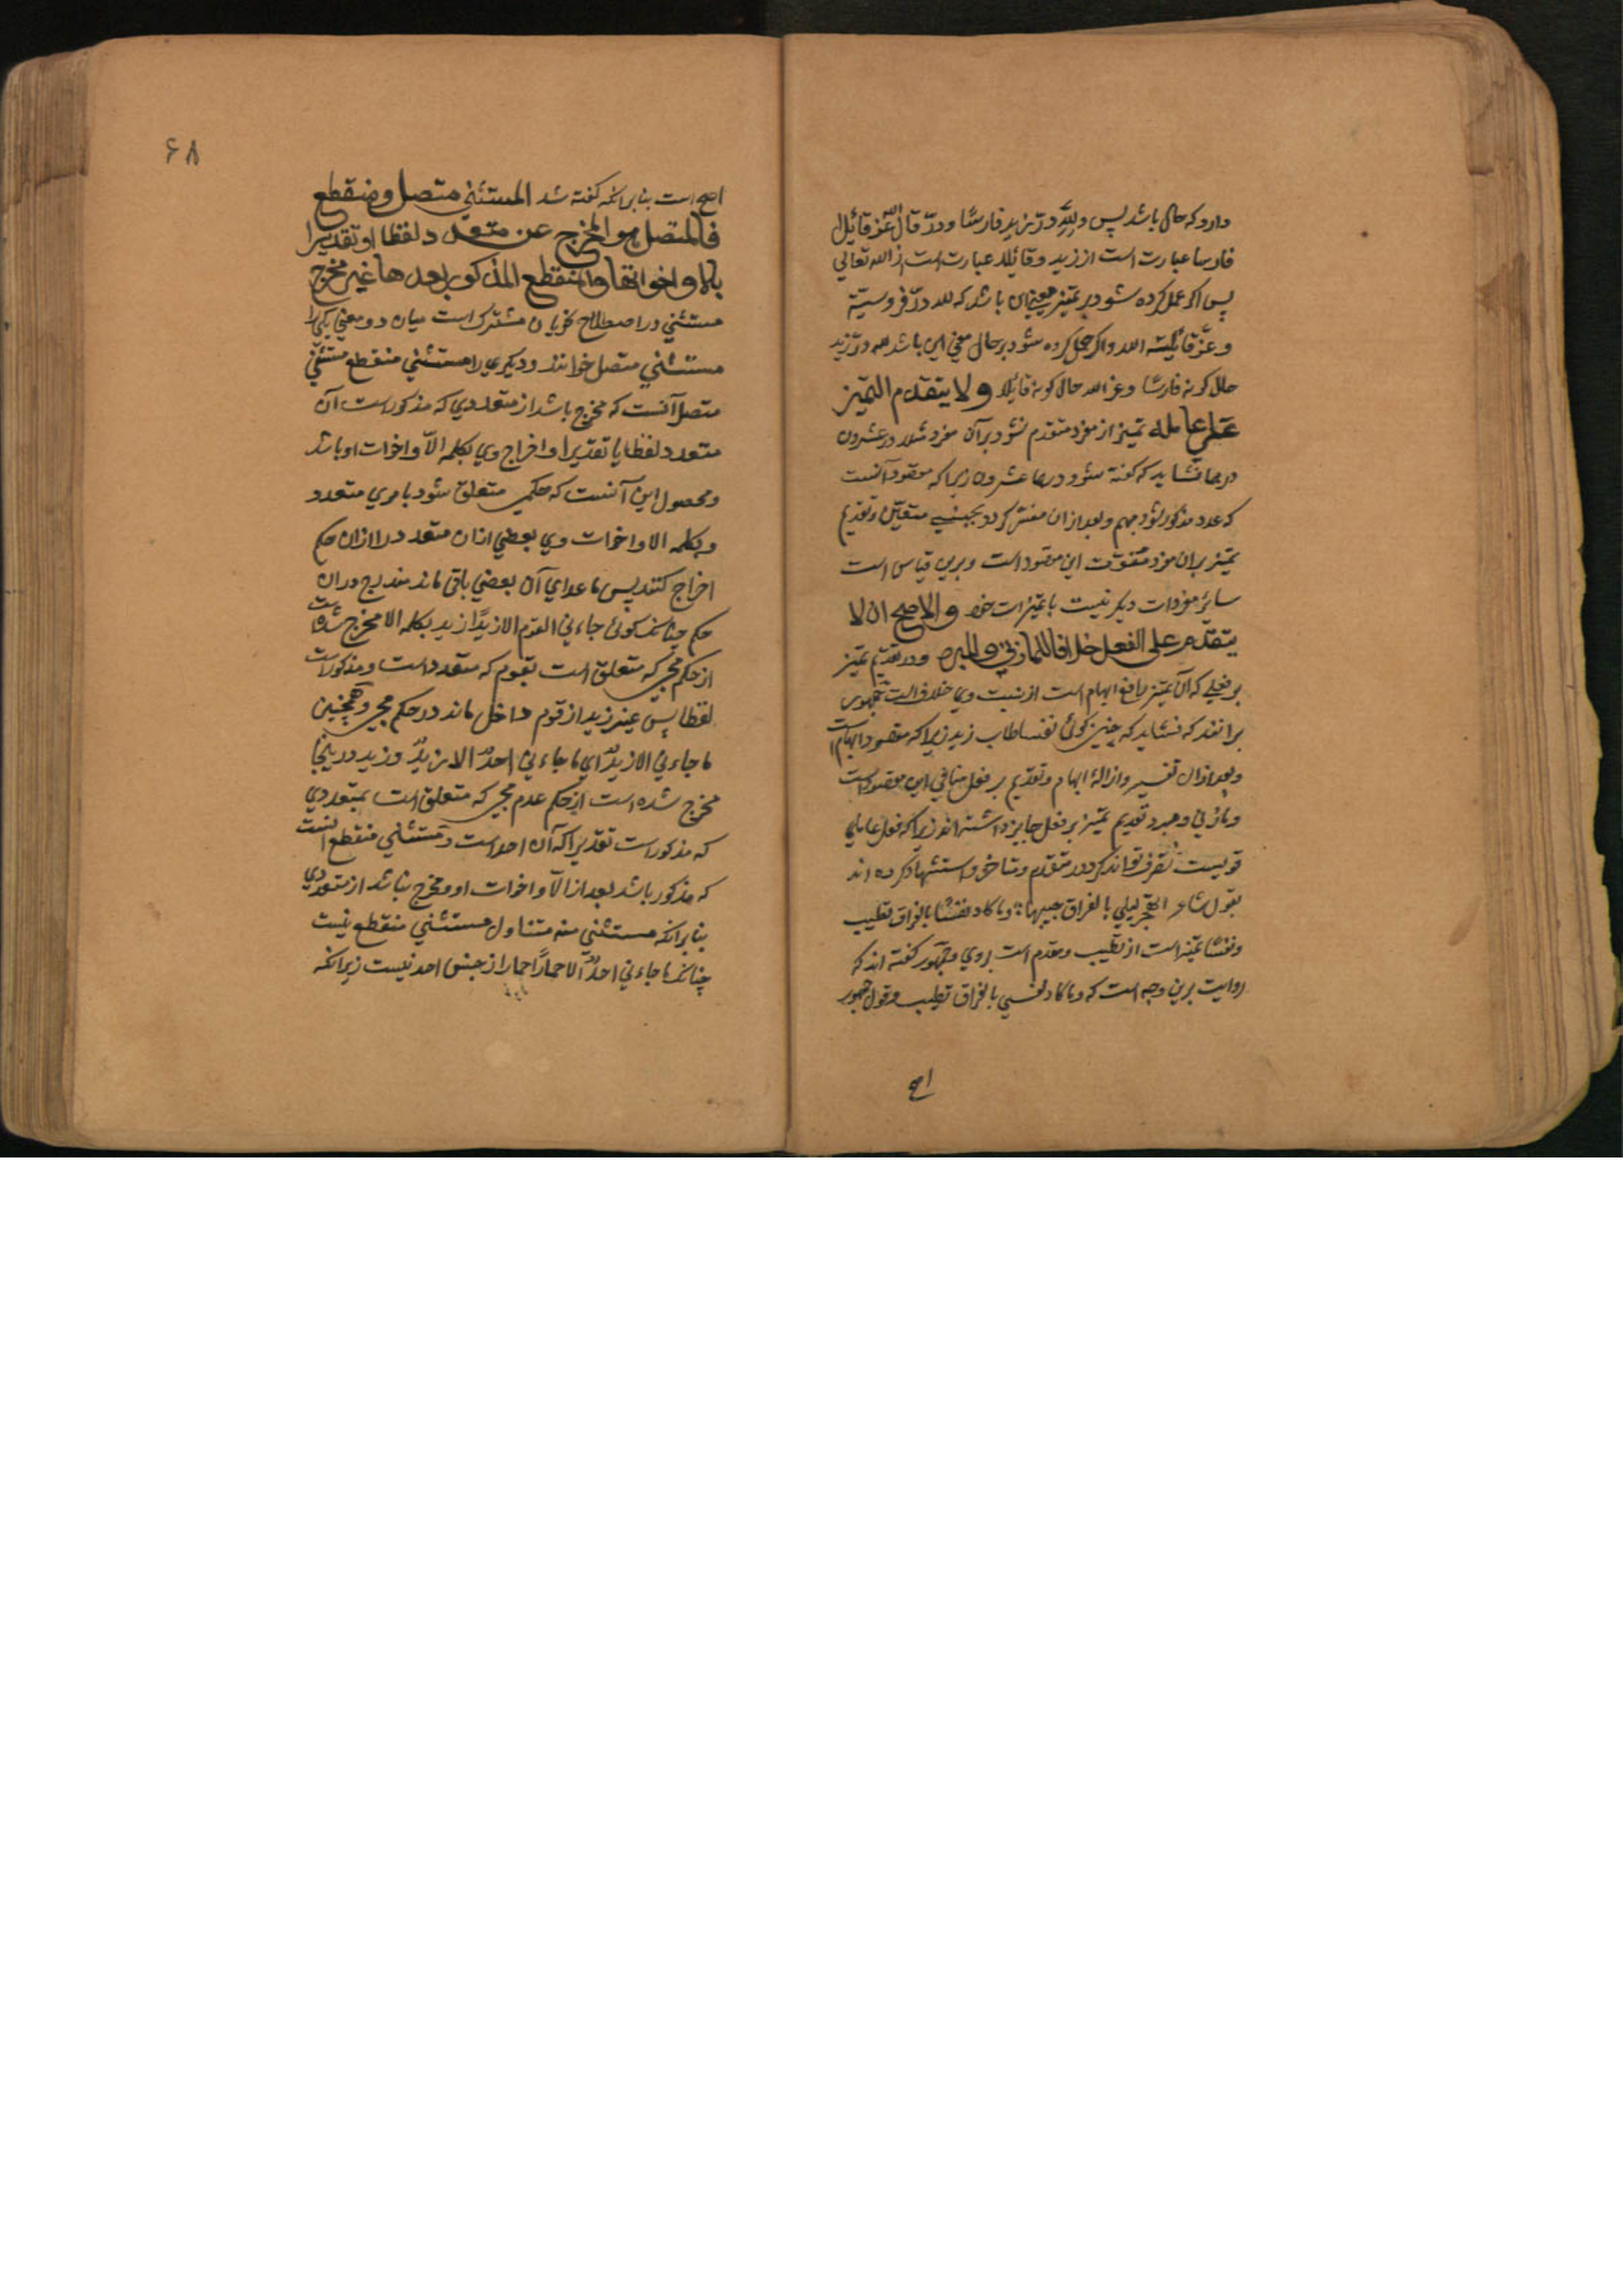 دارد که حال باشد پس در لله در زید فارسا و در قال الله عز قائلا
فارسا عبارت است از زید و قائلا عبارت است از الله تعالی
پس اکر حمل کرده شود بر تمیز معنی این باشد که لله در فروسیته
و عز قائلیته الله و اکر حمل کرده شود بر حال معنی این باشد لله در زید
حال کونه فارسا و عز الله حال کونه قائلا و لا یتقدم التمیز
علی عامله تمیز از مفرد متقدم نشود بر آن مفرد مثلا در عشرون
درهما نشاید که کفته شود درهما عشرون زیرا که مقصود آنست
که عدد مذکور شود مبهم و بعد از ان مفسر کردد بجنسی متعین و تقدیم
تمیز بران مفرد مفوت این مقصود است و برین قیاس است
سایر مفردات دیکر نسبت با تمیزات خود و الاصح ان لا
یتقدم علی الفعل خلافا للمازنی و المبرد و در تقدیم تمیز
بر فعلی که آن تمیز رافع ابهام است از نسبت وی خلاف است جمهور
برانند که نشاید که چنین کوئی نفسا طاب زید زیرا که مقصود ابهام است
و بعد ازان تفسیر و ازالهٔ ابهام و تقدیم بر فعل منافی این مقصود است
و مازنی و مبرد تقدیم تمیز بر فعل جایز داشته اند زیرا که فعل عاملی
قویست تصرف تواند کرد در متقدم و متاخر و استشهاد کرده اند
بقول شاعر اتهجر لیلی بالفراق حبیبها وما کاد نفسا بالفراق تطیب
و نفسا تمیز است از تطیب و مقدم است بروی و جمهور کفته اند که
روایت برین وجه است که وما کاد نفسی بالفراق تطیب و قول جمهور
اصح
۶۸
اصح است بنا برانکه کفته شد المستثنی متصل و منقطع
فالمتصل هو المخرج عن متعدد لفظا او تقدیرا
بالا و اخواتها والمنقطع المذکور بعدها غیر مخرج
مستثنی در اصطلاح نحویان مشترک است میان دو معنی یکی را
مستثنی متصل خوانند و دیکری را مستثنی منقطع مستثنی
متصل آنست که مخرج باشد از متعددی که مذکور است آن
متعدد لفظا یا تقدیرا و اخراج وی بکلمه الا و اخوات او باشد
و محصول این آنست که حکمی متعلق شود بامری متعدد
و بکلمه الا و اخوات وی بعضی ازان متعدد را ازان حکم
اخراج کنند پس ماعدای آن بعضی باقی ماند مندرج دران
حکم چنانکه کوئی جاءنی القوم الا زیدا زید بکلمه الا مخرج شده است
از حکم مجی که متعلق است بقوم که متعدد است و مذکور است
لفظا پس غیر زید از قوم داخل ماند در حکم مجی و همچنین
ما جاءنی الا زید ای ما جاءنی احد الا زید و زید در ینجا
مخرج شده است از حکم عدم مجی که متعلق است بمتعددی
که مذکور است تقدیرا که آن احد است و مستثنی منقطع آنست
که مذکور باشد بعد از الا و اخوات او و مخرج نباشد از متعددی
بنا برانکه مستثنی منه متناول مستثنی منقطع نیست
چنانکه ما جاءنی احد الا حمارا حمار از جنس احد نیست زیرانکه